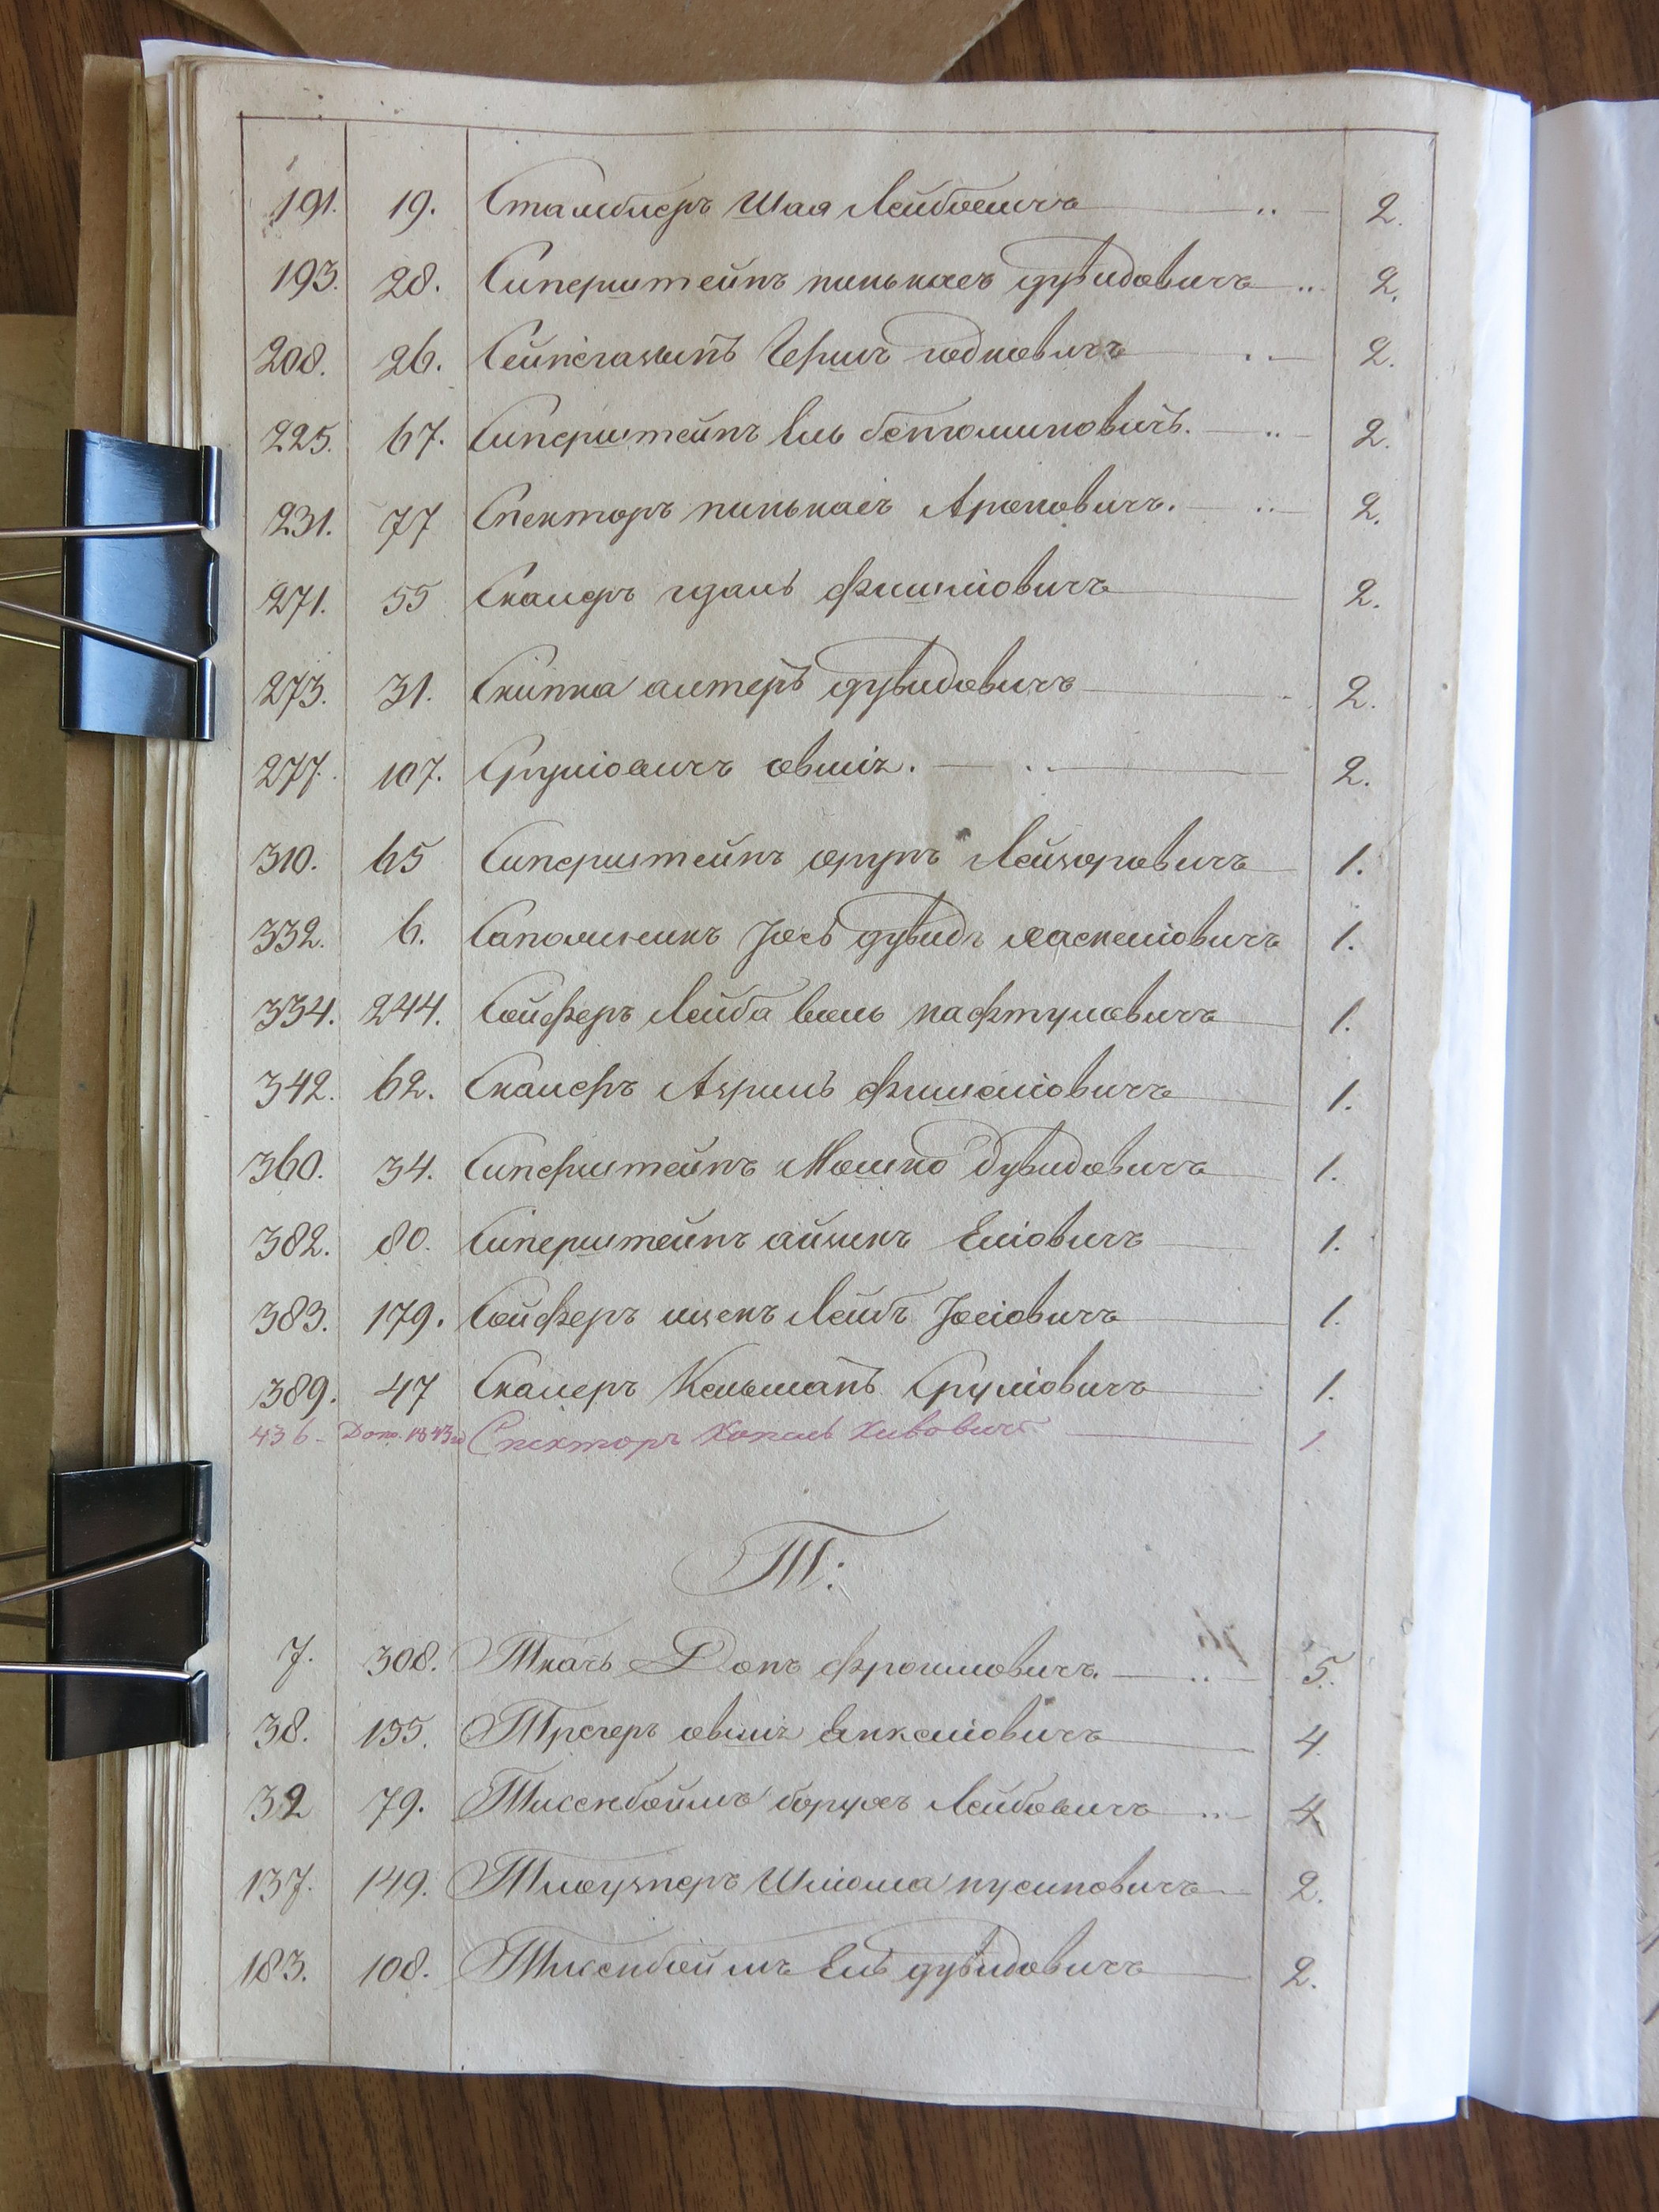 191. 19. Стамблеръ Шая Лейбовичъ 2.
193. 28. Сиперштейнъ пинькасъ дувидовичъ 2.
208. 26. Гершъ 2.
225. 67. Сиперштейнъ Ель беніоминовичъ. 2.
231. 77 Спекторъ пинькасъ Ароновичъ. 2.
271. 55 Скалеръ идаль фишліовичъ 2.
273. 31. Скипка алтеръ дувидовичъ 2.
277. 107. Сруліовичъ овшія. 2.
310. 65 Сиперштейнъ Лейзоровичъ 1.
332. 6. Сапожникъ Іось дувидъ хаскеліовичъ 1.
334. 244. Сойферъ Лейба волъ нафтуловичъ 1.
342. 62. Скалеръ Азриль фишеліовичъ 1.
360. 34. Сиперштейнъ Мошко Дувидовичъ 1.
382. 80. Сиперштейнъ айзикъ Еліовичъ 1.
383. 179. Сойферъ ицекъ Лейбъ Іосіовичъ 1.
389. 47 Скалеръ Кельманъ Сруліовичъ 1.
436 Доп. 1843 го Спекторъ Копель Хивовичъ 1.
Т:
7. 308. Ткачь Донъ фроимовичъ. 5.
38. 155. Трегеръ овшія Янкеліовичъ 4.
32 79. Тисенбоймъ борухъ Лейбовичъ 4
137. 149. Шліома нусиновичъ 2.
183. 108. Тисенбоймъ Ель дувидовичъ 2.